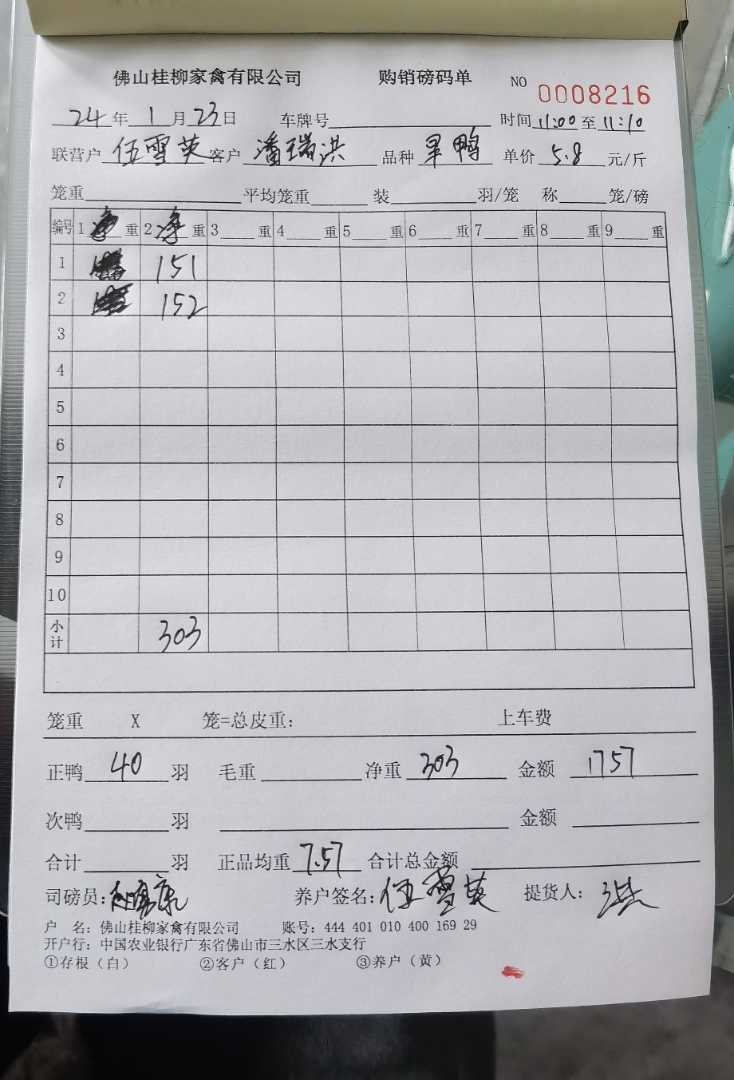 佛山桂柳家禽有限公司 购销磅码单 NO 0008216
24年1月23日 车牌号 时间11:00至11:10
联营户 伍雪英 客户 潘瑞洪 品种 旱鸭 单价 5.8 元/斤
笼重 平均笼重 装 羽/笼 称 笼/磅
编号 1 重 2 净 重 3 重 4 重 5 重 6 重 7 重 8 重 9 重
1 151
2 152
3
4
5
6
7
8
9
10
小计 303
笼重 X 笼=总皮重: 上车费
正鸭 40 羽 毛重 净重 303 金额 1757
次鸭 羽 金额
合计 羽 正品均重 7.57 合计总金额
司磅员: 养户签名: 伍雪英 提货人: 洪
户 名: 佛山桂柳家禽有限公司 账号: 444 401 010 400 169 29
开户行: 中国农业银行广东省佛山市三水区三水支行
①存根（白） ②客户（红） ③养户（黄）